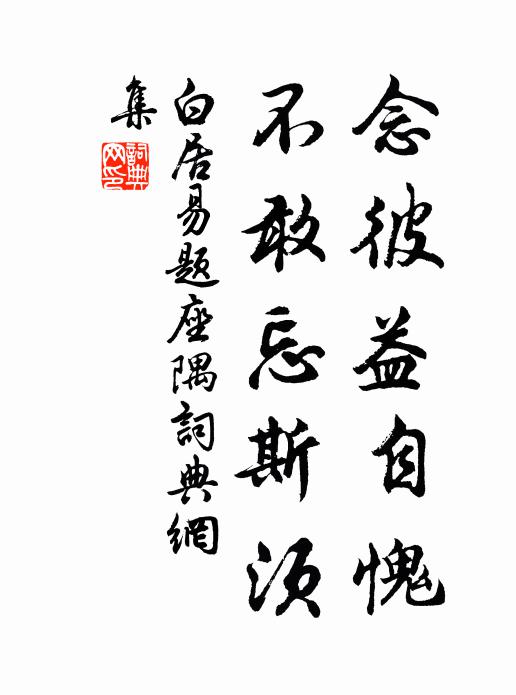 念彼益自愧
不敢忘斯须
白居易题座隅詞典網
集
詞典
网印